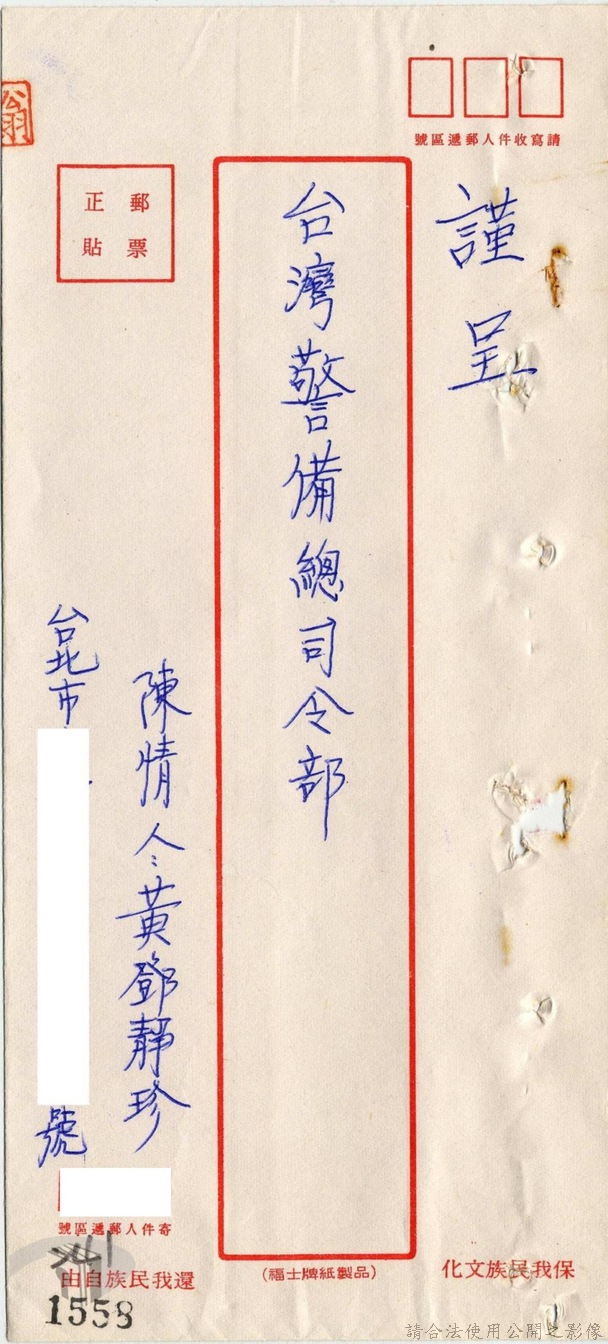 請寫收件人郵遞區號
謹呈
台灣警備總司令部
郵票
正貼
陳情人:黃鄧靜珍
台北市
號
寄件人郵遞區號
保我民族文化
(福士牌紙製品)
還我民族自由
翁
1558
請合法使用公開之影像